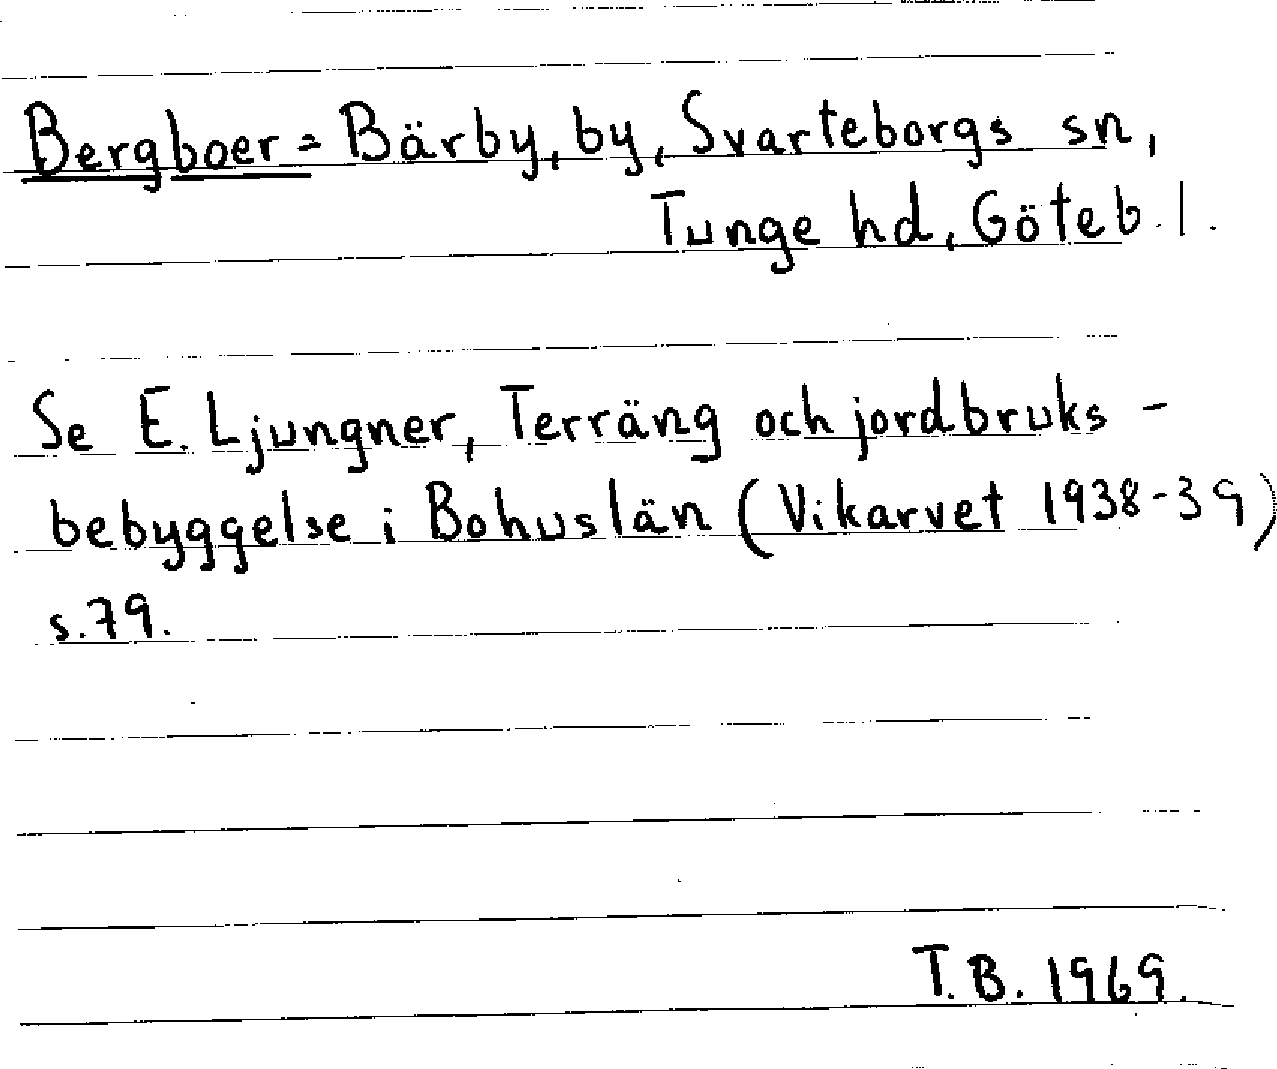 Bergboer = Bärby, by, Svarteborgs sn,
Tunge hd, Göteb. l.
Se E. Ljungner, Terräng och jordbruks-
bebyggelse i Bohuslän (Vikarvet 1938-39)
s. 79.
T.B. 1969.